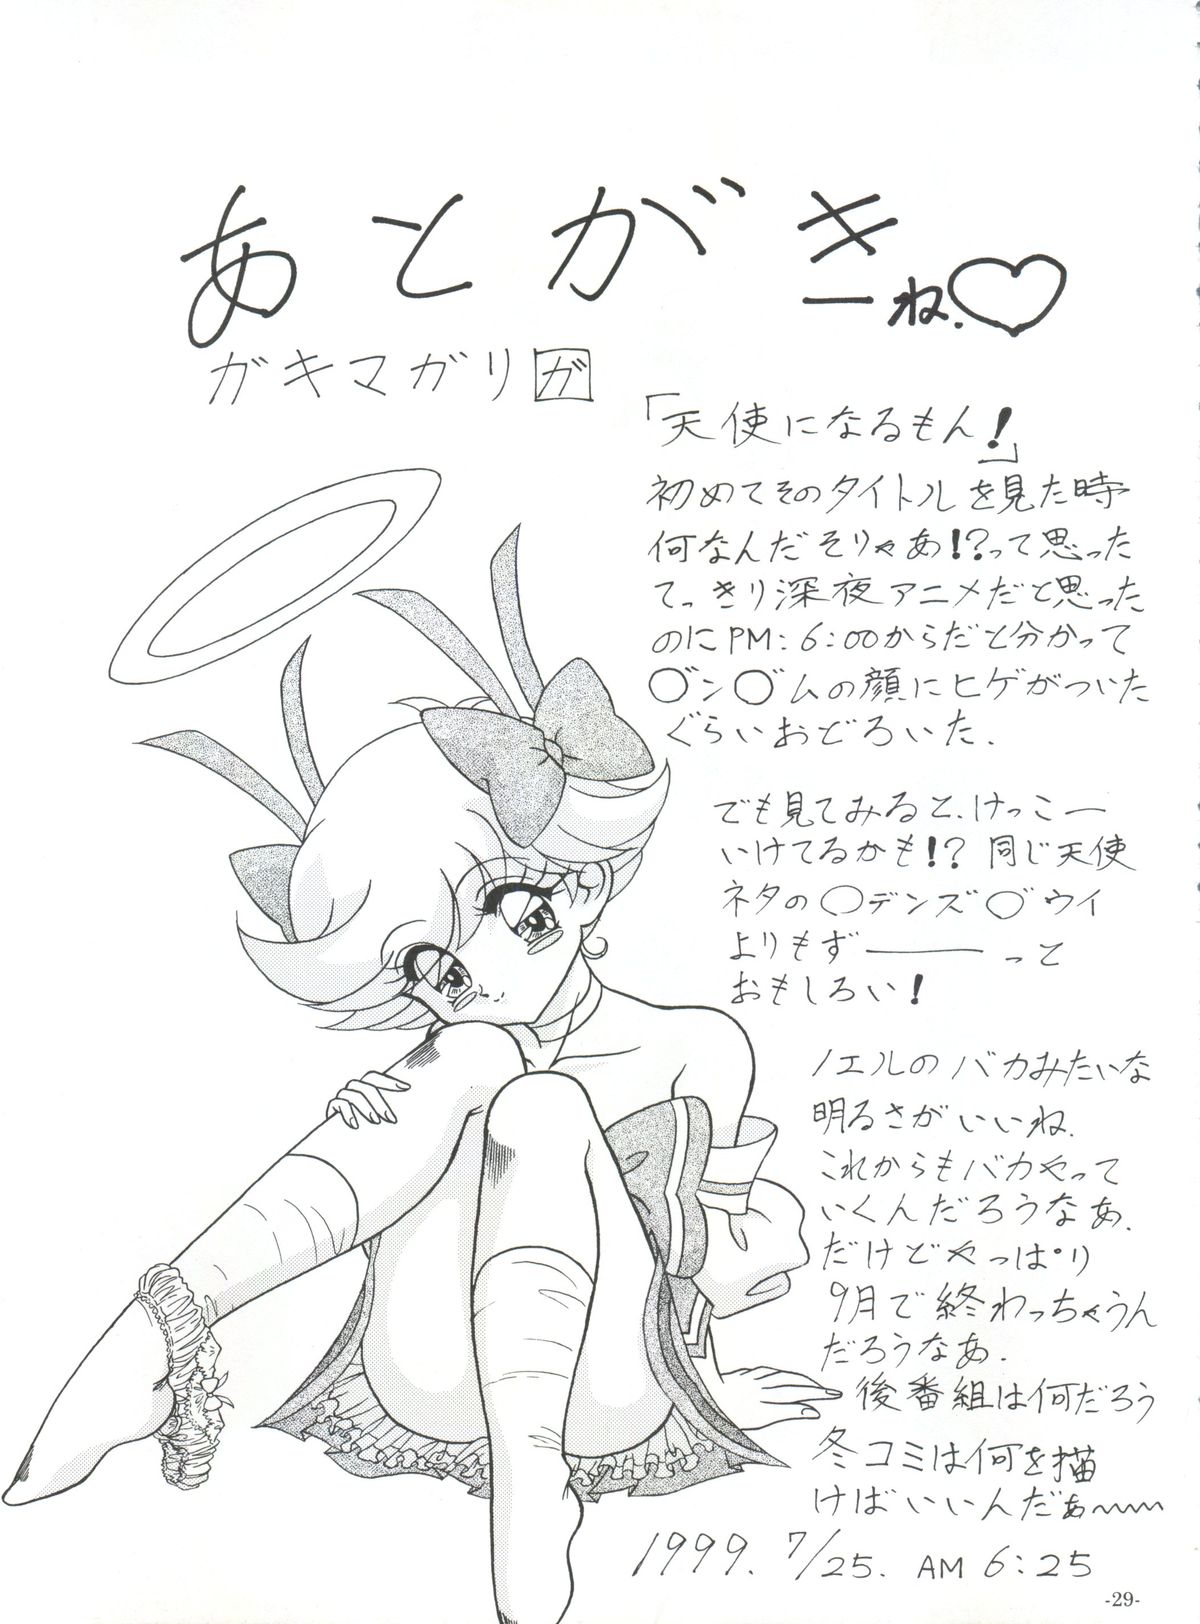 あとがきーね.♡
ガキマガリガ
「天使になるもん!」
初めてそのタイトルを見た時
何なんだそりゃあ!?って思った
てっきり深夜アニメだと思った
のにPM:6:00からだと分かって
〇゛ン〇゛ムの顔にヒゲがついた
ぐらいおどろいた.
でも見てみると、けっこー
いけてるかも!?同じ天使
ネタの〇デンズ〇゛ウイ
よりもず――って
おもしろい!
ノエルのバカみたいな
明るさがいいね.
これからもバカやって
いくんだろうなぁ.
だけどやっぱり
9月で終わっちゃうん
だろうなぁ.
後番組は何だろう
冬コミは何を描
けばいいんだぁ〜〜
1999. 7/25. AM 6:25
-29-